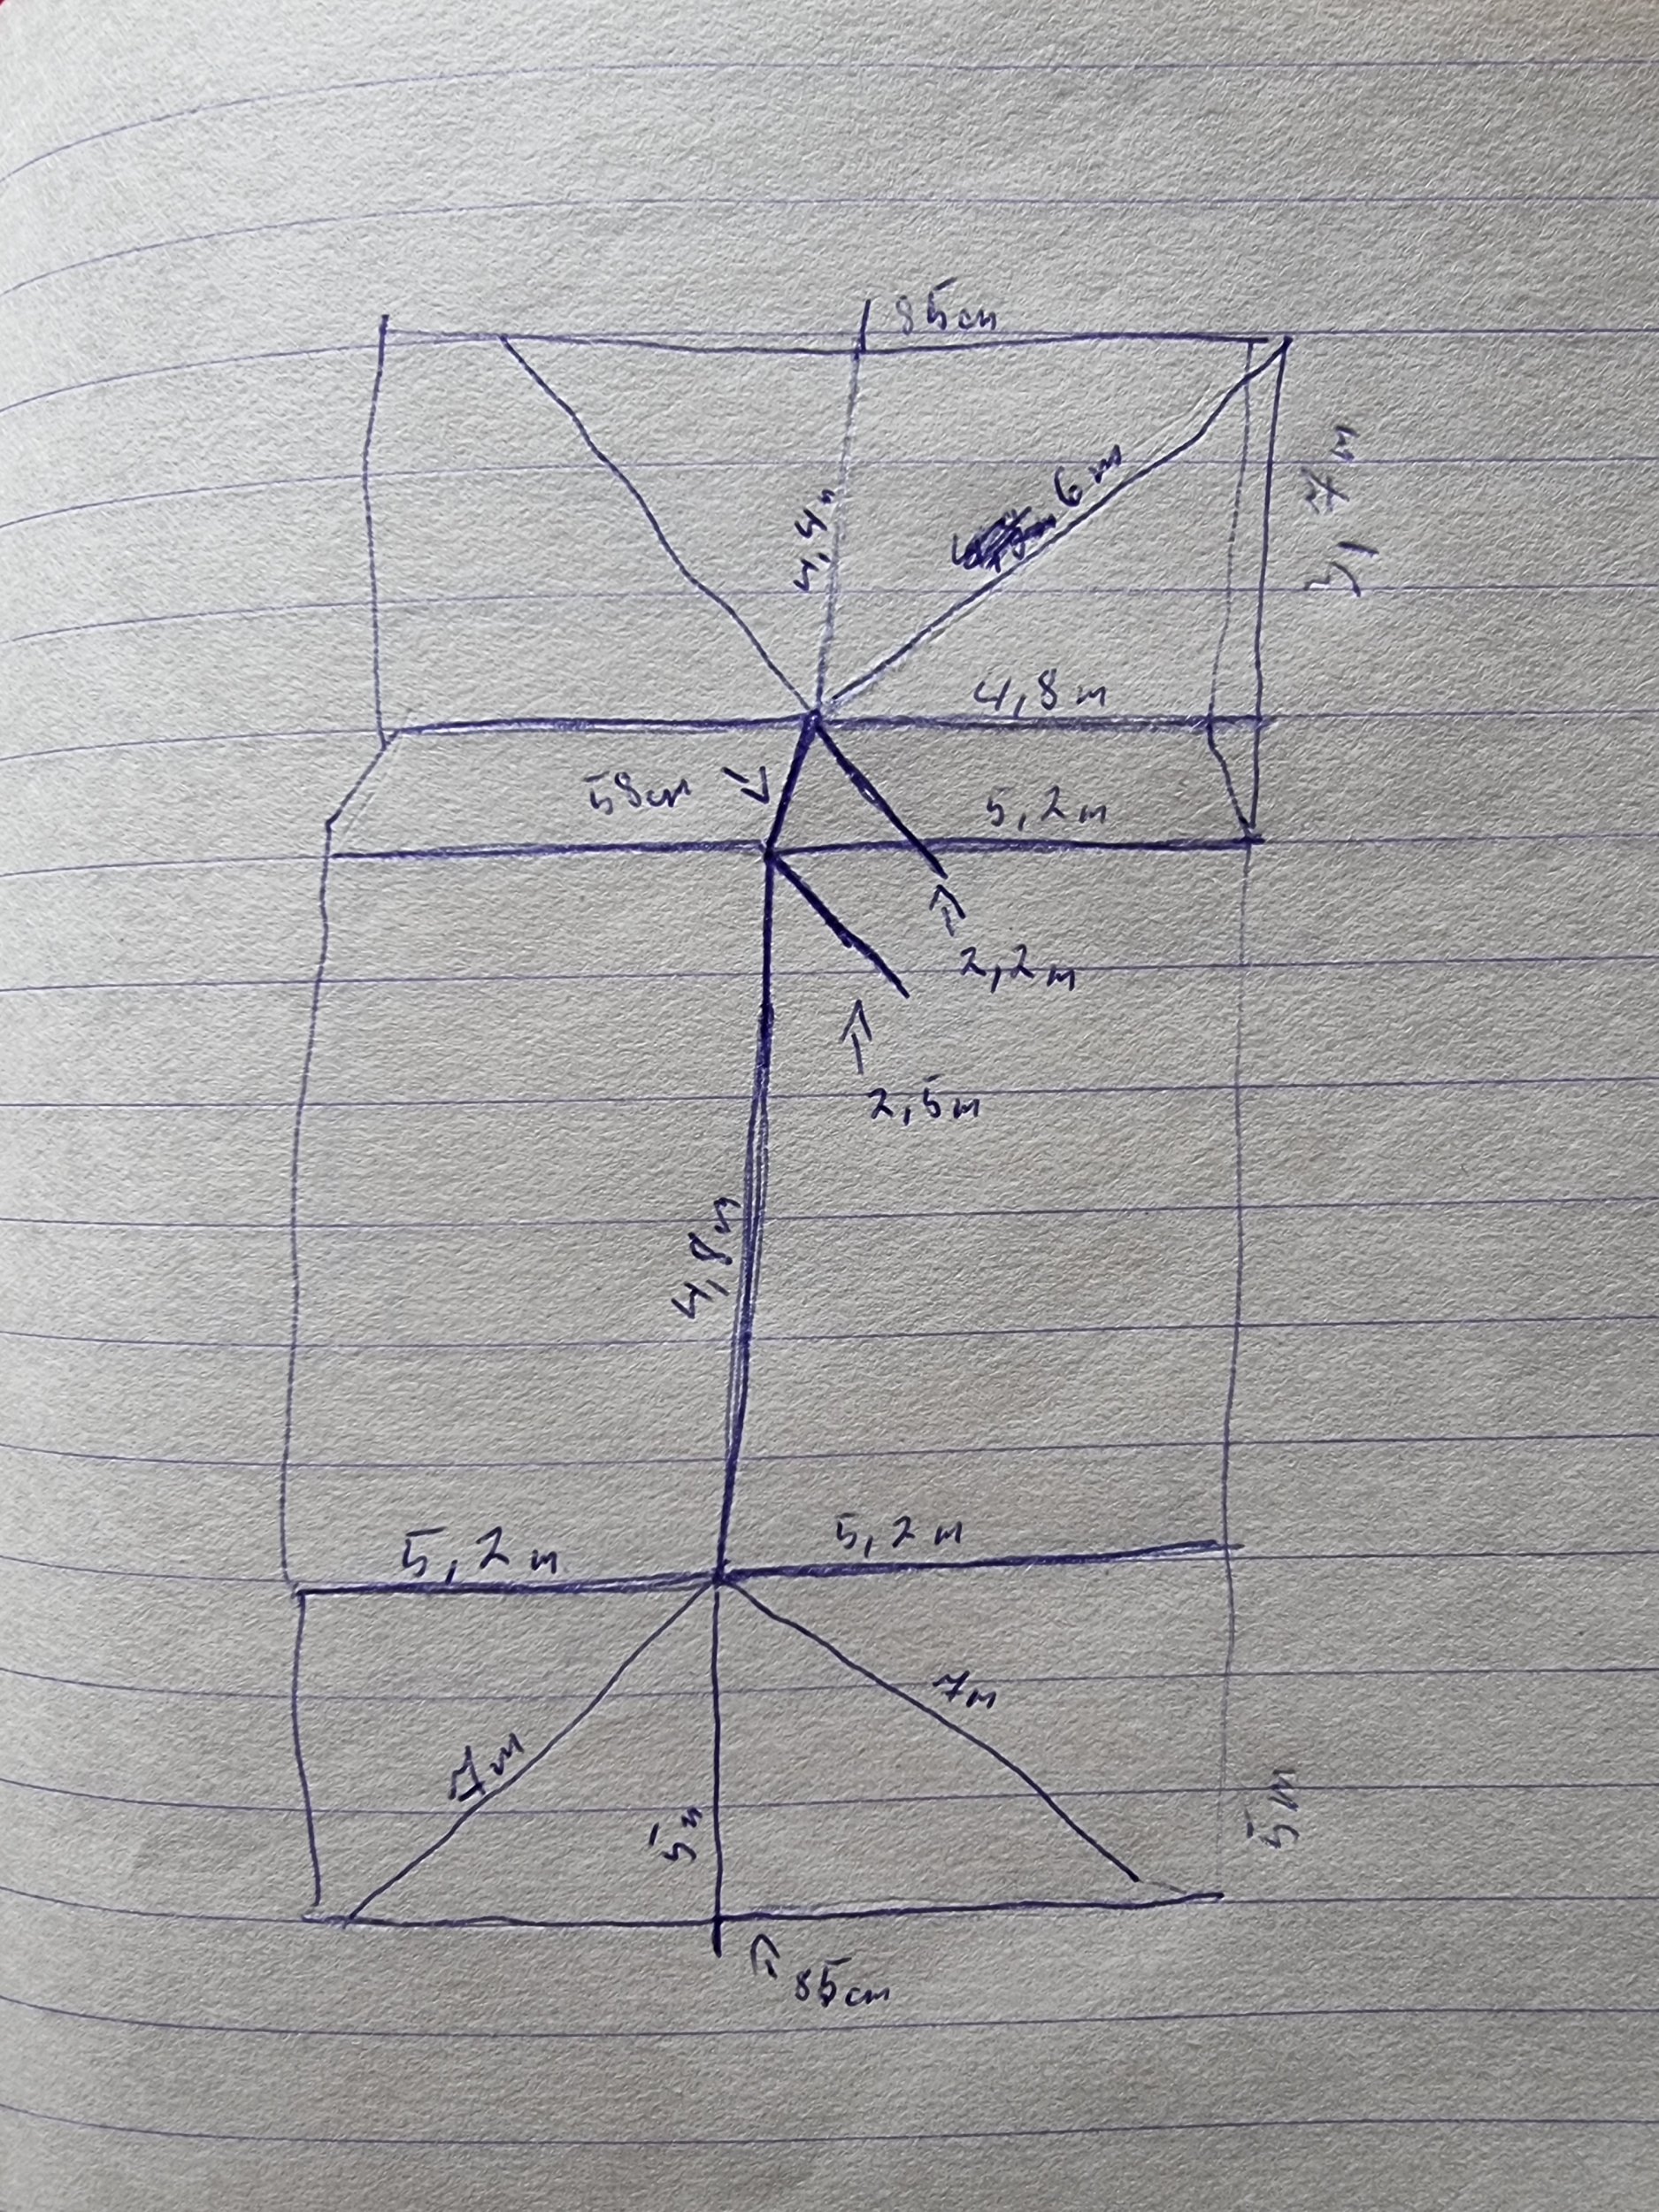 85cm
4,4m
6m
4,8m
58cm
5,2m
2,2m
2,5m
4,8m
5,2m
5,2m
7m
7m
5m
5m
85cm